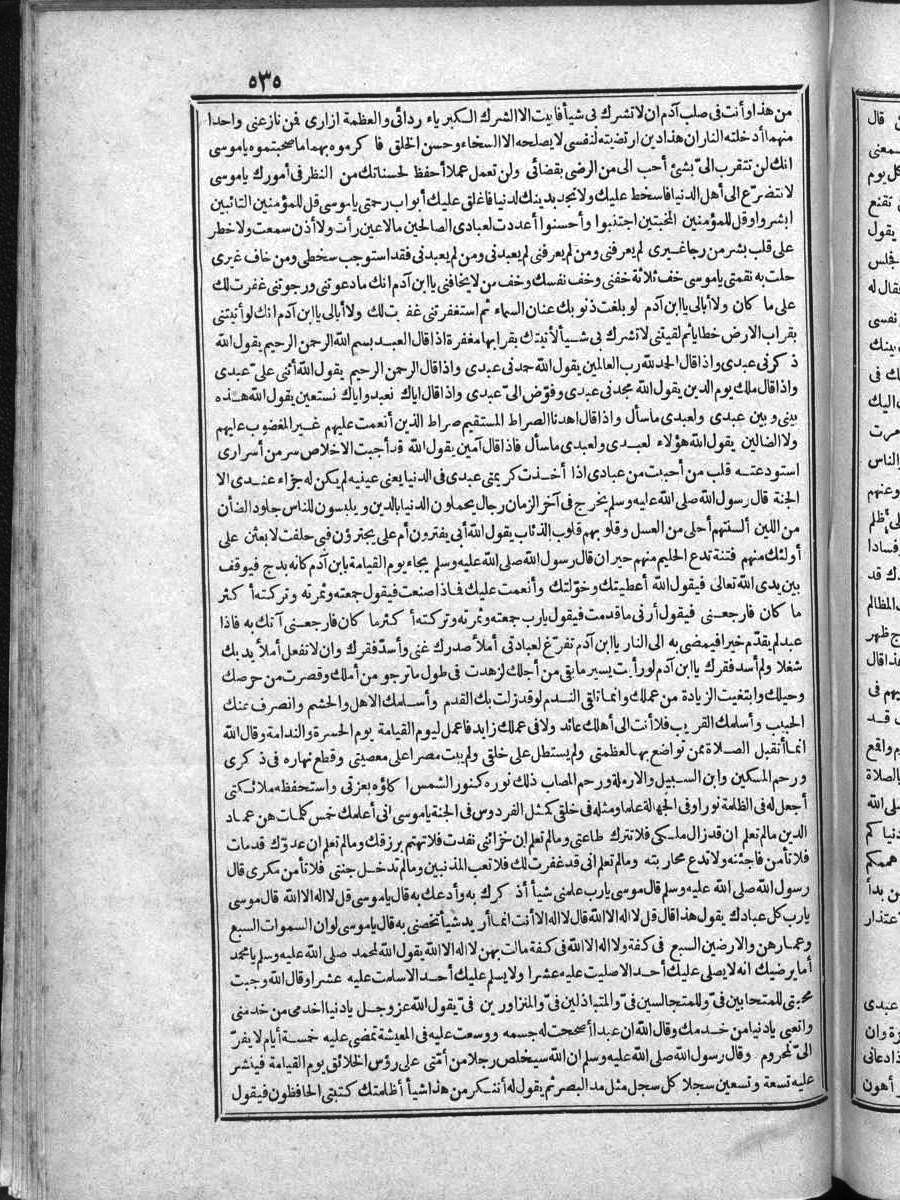 ٥٣٥
من هذا وأنت فى صلب آدم ان لا تشرك بى شيأ فابيت الا الشرك الكبرياء ردائى والعظمة ازارى فن نازعنى واحدا
منهما أدخلته النار ان هذا دين ارتضيته لنفسى لا يصلحه الا السخاء وحسن الخلق فاكرموه بهما ما صحبتموه ياموسى
انك لن تتقرب الىّ بشئ أحب الى من الرضى بقضائى ولن تعمل عملا أحفظ لحسناتك من النظر فى أمورك ياموسى
لا تتضرع الى أهل الدنيا فاسخط عليك ولا تجد بدينك لدنيا فاغلق عليك أبواب رحمتى ياموسى قل للمؤمنين التائبين
ابشروا وقل للمؤمنين المخبتين اجتنبوا وأحسنوا أعددت لعبادى الصالحين مالا عين رأت ولا أذن سمعت ولا خطر
على قلب بشر من رجا غيرى لم يعرفنى ومن لم يعرفنى لم يعبدنى ومن لم يعبدنى فقد استوجب سخطى ومن خاف غيرى
حلت به نقمتى ياموسى خف ثلاثة خفنى وخف نفسك وخف من لا يخافنى يا ابن آدم انك ما دعوتنى ورجوتنى غفرت لك
على ما كان ولا أبالى يا ابن آدم لو بلغت ذنوبك عنان السماء ثم استغفرتنى غفرت لك ولا أبالى يا ابن آدم انك لو أتيتنى
بقراب الارض خطايا ثم لقيتنى لا تشرك بى شيأ لأتيتك بقرابها مغفرة اذا قال العبد بسم الله الرحمن الرحيم يقول الله
ذكرنى عبدى واذا قال الحمد لله رب العالمين يقول الله حمدنى عبدى واذا قال الرحمن الرحيم يقول الله أثنى علىّ عبدى
واذا قال ملك يوم الدين يقول الله مجدنى عبدى وفوّض الىّ عبدى واذا قال اياك نعبد واياك نستعين يقول الله هذه
بينى وبين عبدى ولعبدى ما سأل واذا قال اهدنا الصراط المستقيم صراط الذين أنعمت عليهم غير المغضوب عليهم
ولا الضالين يقول الله هؤلاء لعبدى ولعبدى ما سأل فاذا قال آمين يقول الله قد أجبت الاخلاص سر من أسرارى
استودعته قلب من أحببت من عبادى اذا أخذت كريمتى عبدى فى الدنيا يعنى عينيه لم يكن له جزاء عندى الا
الجنة قال رسول الله صلى الله عليه وسلم يخرج فى آخر الزمان رجال يحملون الدنيا بالدين ويلبسون للناس جلود الضأن
من اللين ألسنتهم أحلى من العسل وقلوبهم قلوب الذئاب يقول الله أبى يغترون أم على يجترؤن فبى حلفت لابعثن على
أولئك منهم فتنة تدع الحليم منهم حيران قال رسول الله صلى الله عليه وسلم يجاء يوم القيامة بابن آدم كانه بذج فيوقف
بين يدى الله تعالى فيقول الله أعطيتك وخوّلتك وأنعمت عليك فماذا صنعت فيقول جمعته وثمرته وتركته أكثر
ما كان فارجعنى فيقول أرنى ما قدمت فيقول يارب جمعته وثمرته وتركته أكثر ما كان فارجعنى آتك به فاذا
عبد لم يقدّم خيرا فيمضى به الى النار يا ابن آدم تفرّغ لعبادتى أملأ صدرك غنى وأسدّ فقرك وان لا تفعل أملأ يديك
شغلا ولم أسد فقرك يا ابن آدم لو رأيت يسير ما بقى من أجلك لزهدت فى طول ما ترجو من أملك وقصرت من حرصك
وحيلك وابتغيت الزيادة من عملك وانما تلقى الندم لو قد زلت بك القدم وأسلمك الاهل والحشم وانصرف عنك
الحبيب وأسلمك القريب فلا أنت الى أهلك عائد ولا فى عملك زايد فاعمل ليوم القيامة يوم الحسرة والندامة وقال الله
انما أتقبل الصلاة ممن تواضع بها لعظمتى ولم يستطل على خلقى ولم يبت مصرا على معصيتى وقطع نهاره فى ذكرى
ورحم المسكين وابن السبيل والارملة ورحم المصاب ذلك نوره كنور الشمس اكلؤه بعزتى واستحفظه ملائكتى
أجعل له فى الظلمة نورا وفى الجهالة علما ومثله فى خلقى كمثل الفردوس فى الجنة ياموسى انى أعلمك خمس كلمات هن عماد
الدين ما لم تعلم ان قد زال ملكى فلا تترك طاعتى وما لم تعلم ان خزائنى نفدت فلا تهتم برزقك وما لم تعلم ان عدوّك قد مات
فلا تأمن فاجئته ولا تدع محاربته وما لم تعلم انى قد غفرت لك فلا تعب المذنبين وما لم تدخل جنتى فلا تأمن مكرى قال
رسول الله صلى الله عليه وسلم قال موسى يارب علمنى شيأ أذكرك به وأدعك به قال ياموسى قل لا اله الا الله قال موسى
يارب كل عبادك يقول هذا قال قل لا اله الا الله قال لا اله الا أنت انما أريد شيأ تخصنى به قال ياموسى لو ان السموات السبع
وعمارهن والارضين السبع فى كفة ولا اله الا الله فى كفة مالت بهن لا اله الا الله يقول الله لمحمد صلى الله عليه وسلم يا محمد
أما يرضيك انه لا يصلى عليك أحد الا صليت عليه عشرا ولا يسلم عليك أحد الا سلمت عليه عشرا وقال الله وجبت
محبتى للمتحابين فىّ وللمتجالسين فىّ والمتباذلين فىّ والمتزاورين فىّ يقول الله عز وجل يا دنيا اخدمى من خدمنى
واتعبى يادنيا من خدمك وقال الله ان عبدا أصححت له جسمه ووسعت عليه فى المعيشة تمضى عليه خمسة أيام لا يفرّ
الىّ لمحروم وقال رسول الله صلى الله عليه وسلم ان الله سيخلص رجلا من أمتى على رؤس الخلائق يوم القيامة فينشر
عليه تسعة وتسعين سجلا كل سجل مثل مد البصر ثم يقول له أتنكر من هذا شيأ أظلمتك كتبتى الحافظون فيقول